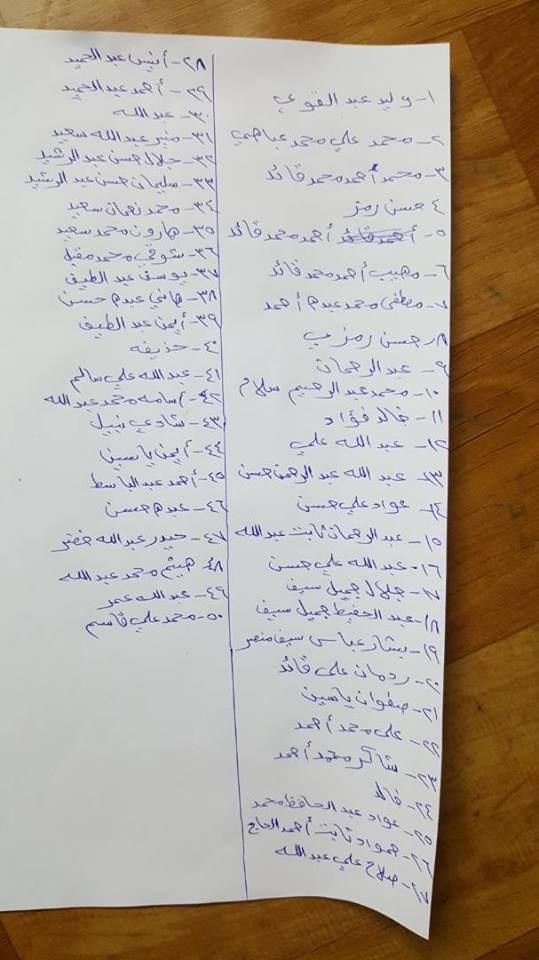 ١- وليد عبد القوي
٢- محمد علي محمد عباس
٣- محمد أحمد محمد قائد
٤ حسن رمز
٥- أحمد محمد قائد
٦- مهيب أحمد محمد قائد
٧- مصطفى محمد عبده أحمد
٨- حسن رمزي
٩- عبد الرحمان
١٠- محمد عبد الرحيم سلام
١١- خالد فؤاد
١٢- عبد الله علي
١٣- عبد الله عبد الرحمن حسن
١٤- عواد علي حسن
١٥- عبد الرحمان ثابت عبد الله
١٦- عبد الله علي حسن
١٧- جلال جميل سيف
١٨- عبد الحفيظ جميل سيف
١٩- بشار عباس سيف منصر
٢٠- ردمان علي قائد
٢١- صفوان ياسين
٢٢- علي محمد أحمد
٢٣- شاكر محمد أحمد
٢٤-
٢٥- عواد عبد الحافظ محمد
٢٦- ثابت أحمد الحاج
٢٧- صلاح علي عبد الله
٢٨- أنيس عبد الحميد
٢٩- أحمد عبد الحميد
٣٠- عبد الله
٣١- منير عبد الله سعيد
٣٢- جلال حسن عبد الرشيد
٣٣- سليمان حسن عبد الرشيد
٣٤- محمد نعمان سعيد
٣٥- هارون محمد سعيد
٣٦- شوقي محمد مقبل
٣٧- يوسف عبد الطيف
٣٨- هاني عبده حسن
٣٩- أيمن عبد الطيف
٤٠- حذيفه
٤١- عبد الله علي سالم
٤٢- أسامه محمد عبد الله
٤٣- شادي نبيل
٤٤- أيمن ياسين
٤٥- أحمد عبد الباسط
٤٦- عبده حسن
٤٧- حيدر عبد الله خضر
٤٨ هيثم محمد عبد الله
٤٩- عبد الله عمر
٥٠- محمد علي قاسم